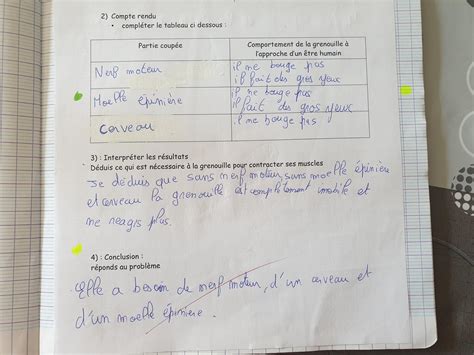 2) Compte rendu
• compléter le tableau ci dessous :
Partie coupée
Comportement de la grenouille à
l'approche d'un être humain
Nerf moteur
il ne bouge pas
il fait des gros yeux
Moelle épinière
il ne bouge pas
il fait des gros yeux
Cerveau
il ne bouge pas
3) : Interpréter les résultats
Déduis ce qui est nécessaire à la grenouille pour contracter ses muscles
Je déduis que sans nerf moteur, sans moelle épinière
et cerveau la grenouille est complètement imobile et
ne reagis plus.
4) : Conclusion :
réponds au problème
Elle a besoin de nerf moteur, d'un cerveau et
d'un moelle épinière.